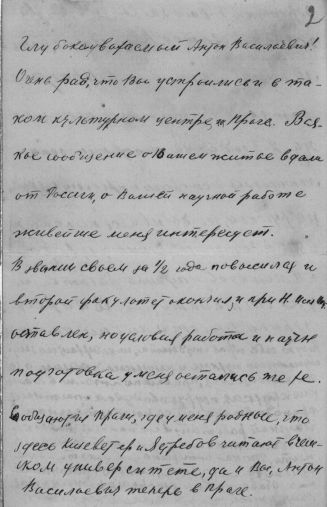 2
Глубокоуважаемый Антон Васильевич!
Очень рад, что Вы устроились и в та-
ком культурном центре, как Прага. Вся-
кое сообщение о Вашем житье вдали
от России, о Вашей научной работе
живейше меня интересует.
В звании своем за 1/2 года повысился и
второй факультет окончил, и при Н.
оставлен, но условия работы и научн
подготовка у меня остались же
Сообщают из Праги, где у меня родные, что
здесь Кизеветтер и Ястребов читают в чеш-
ском университете, да и Вы, Антон
Васильевич теперь в Праге.